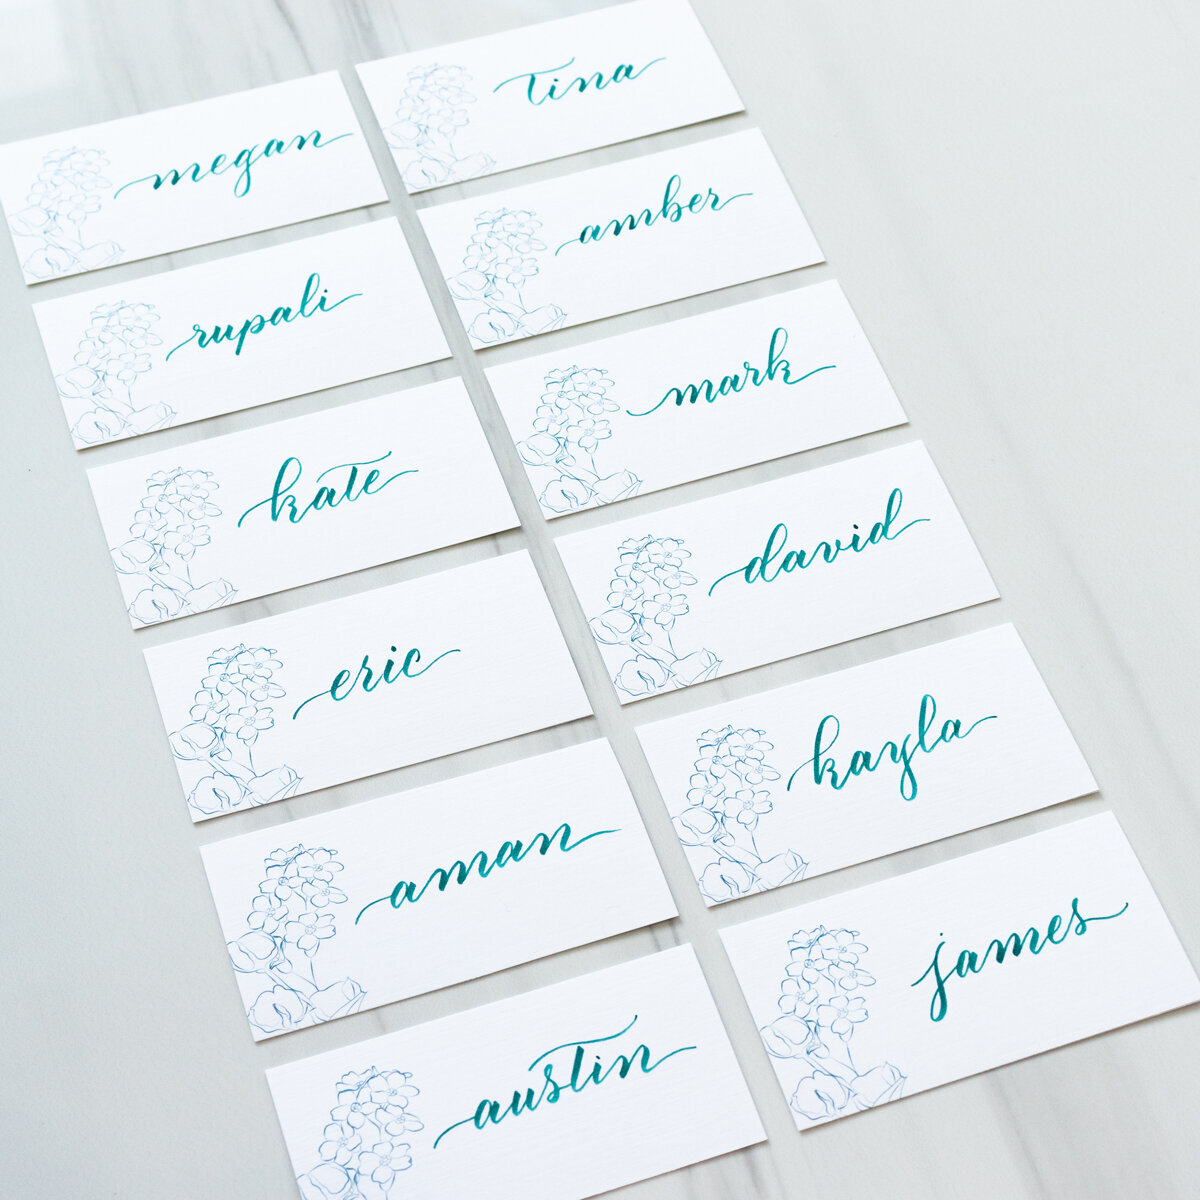 megan
rupali
kate
eric
aman
austin
tina
amber
mark
david
kayla
james